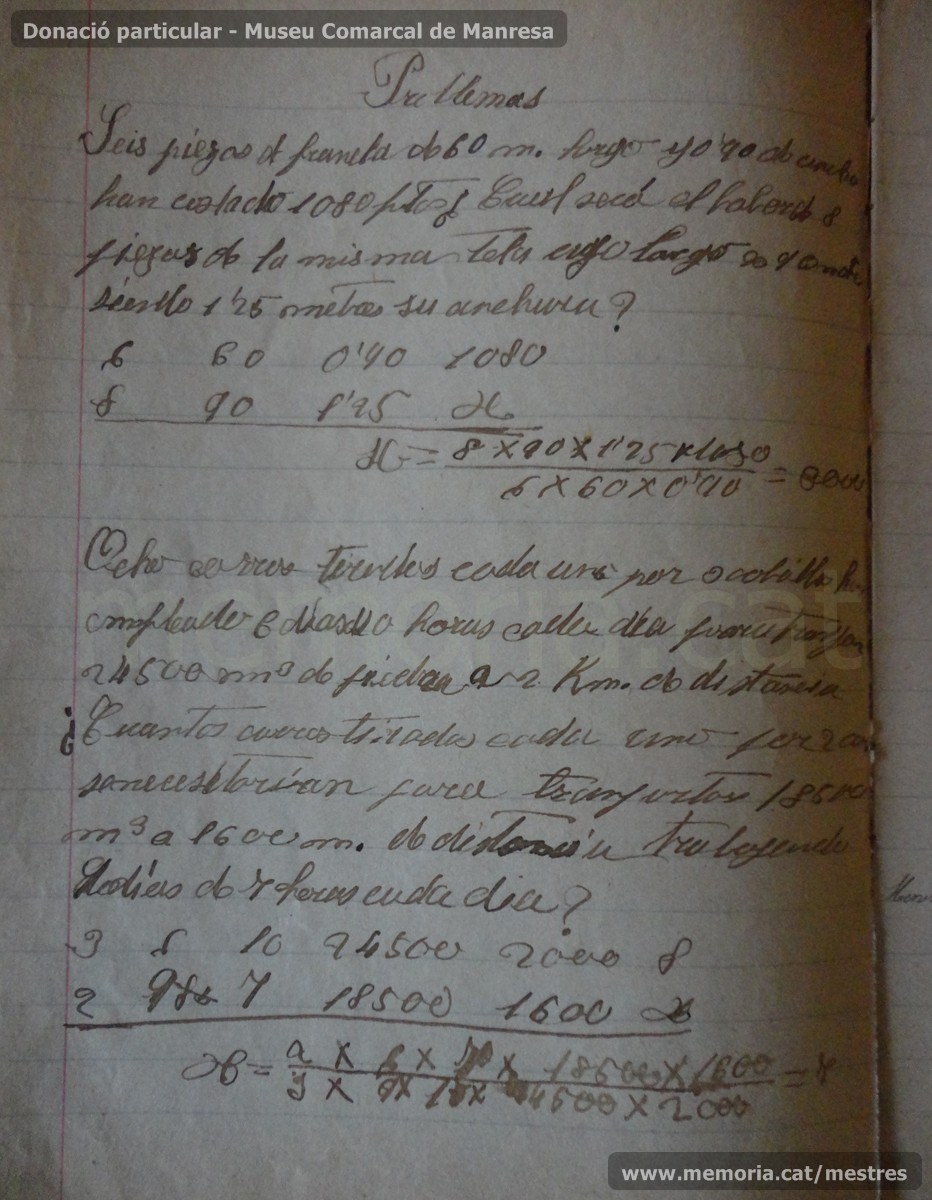 Donació particular - Museu Comarcal de Manresa
Problemas
Seis piezas de franela de 60 m. largo y 0'90 de ancho
han costado 1080 ptas ¿ Cuál será el valor de 8
piezas de la misma tela cuyo largo es 90
siendo 1'25 metros su anchura?
6 60 0'90 1080
8 90 1'25 x
x = 8 X 90 X 1'25 X 1080
6 X 60 X 0'90 =
Ocho carros tirados cada uno por 3 caballo
empleado 6 dias de 10 horas cada dia para
24500 m³ de piedra a 2 Km. de distancia
¿ Cuantos carros tirados cada uno por 2
se necesitarían para 18500
m³ a 1600 m. de distancia trabajando
dias de 7 horas cada dia?
3 6 10 24500 2000 8
2 7 18500 1600 x
x = X 18500 X 1600
X 24500 X 2000
memoria.cat
www.memoria.cat/mestres